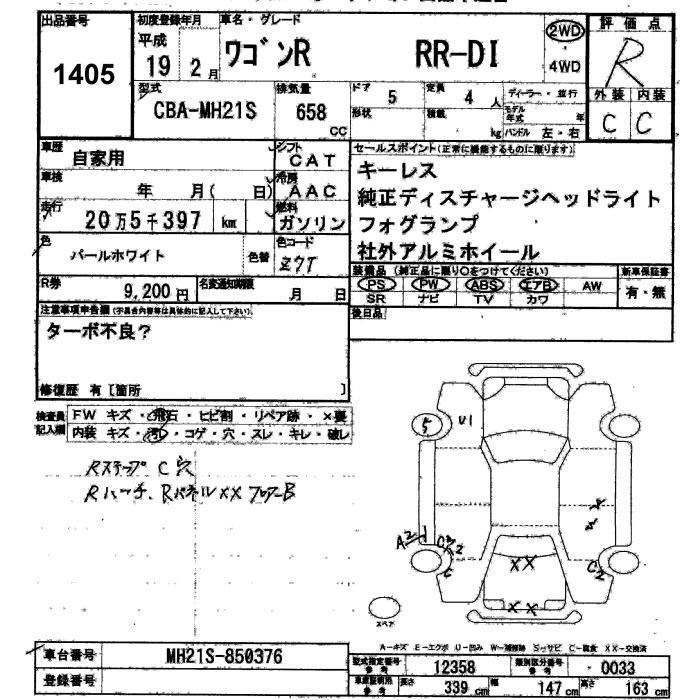 出品番号
1405
初度登録年月
平成
19 2 月
車名・グレード
ワゴンR RR-DI
2WD
4WD
評価点
R
外装 内装
C C
型式
CBA-MH21S
排気量
658
CC
ドア
5
定員
4 人
形状
積載
kg
ディーラー・並行
モデル年式 年
ハンドル 左・右
車歴
自家用
シフト
CAT
車検
年 月( 日)
冷房
AAC
走行
20万5千397 km
燃料
ガソリン
色
パールホワイト
色替
色コード
Z7T
R券
9,200 円
名変通知期限
月 日
セールスポイント(正常に機能するものに限ります)
キーレス
純正ディスチャージヘッドライト
フォグランプ
社外アルミホイール
装備品 (純正品に限り○をつけてください)
PS PW ABS エアB AW
SR ナビ TV カワ
新車保証書
有・無
後日品
注意事項申告欄(不具合内容等は具体的に記入して下さい)
ターボ不良?
修復歴 有 [箇所 ]
検査員
記入欄
FW キズ・飛石・ヒビ割・リペア跡・×裏
内装 キズ・汚レ・コゲ・穴・スレ・キレ・破レ
Rステップ C 穴
Rハッチ、Rパネル XX フロアーB
U1
A2
C2
C
C2
XX
XX
スペア
A―キズ E―エクボ U―凹み W―補修跡 S―サビ C―腐食 XX―交換済
車台番号
MH21S-850376
登録番号
型式指定番号
参考
12358
類別区分番号
参考
0033
車庫証明用
参考
長さ
339 cm
幅
147 cm
高さ
163 cm